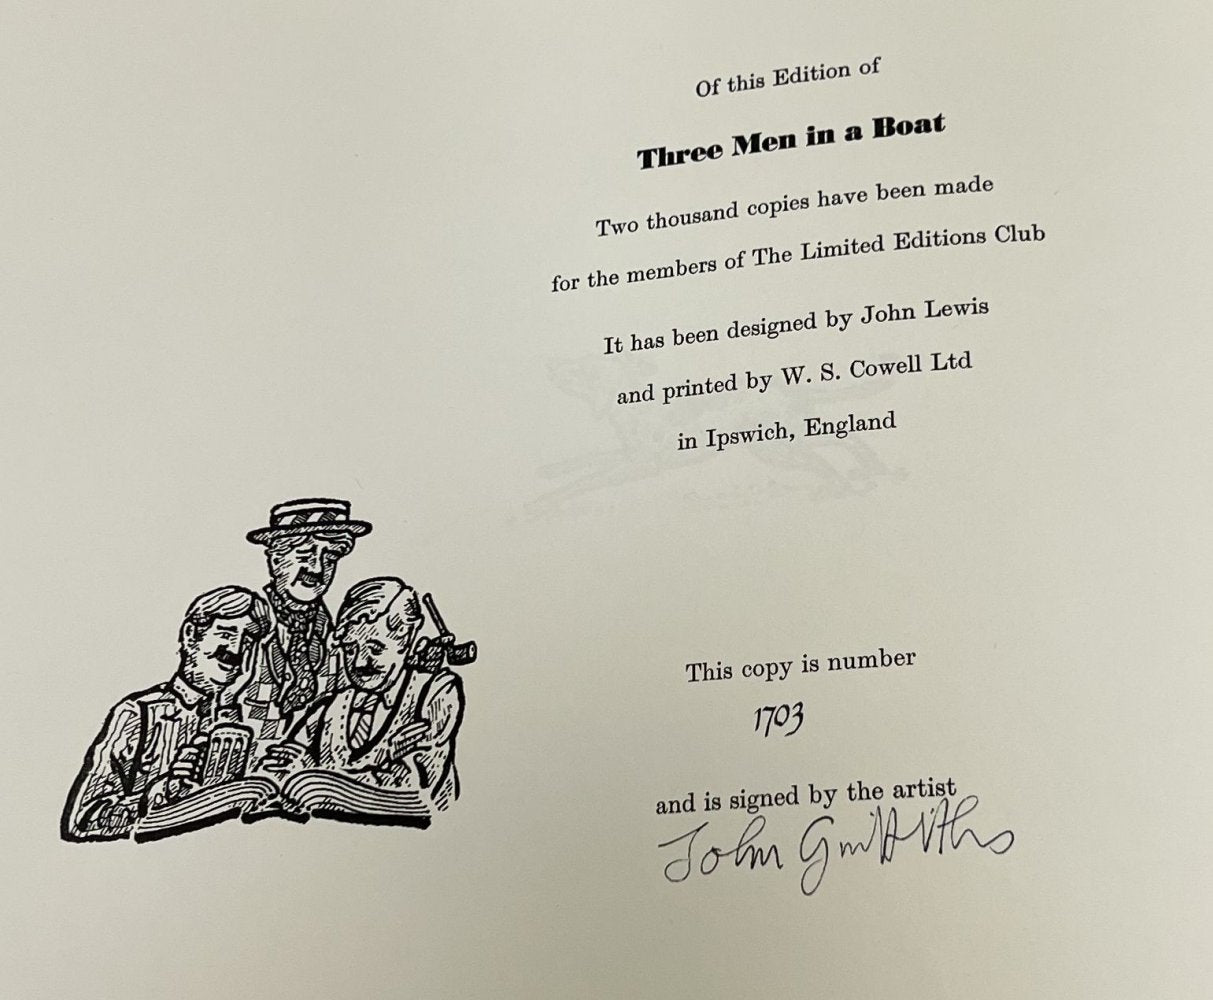 Of this Edition of
Three Men in a Boat
Two thousand copies have been made
for the members of The Limited Editions Club
It has been designed by John Lewis
and printed by W. S. Cowell Ltd
in Ipswich, England
This copy is number
1703
and is signed by the artist
John Griffiths